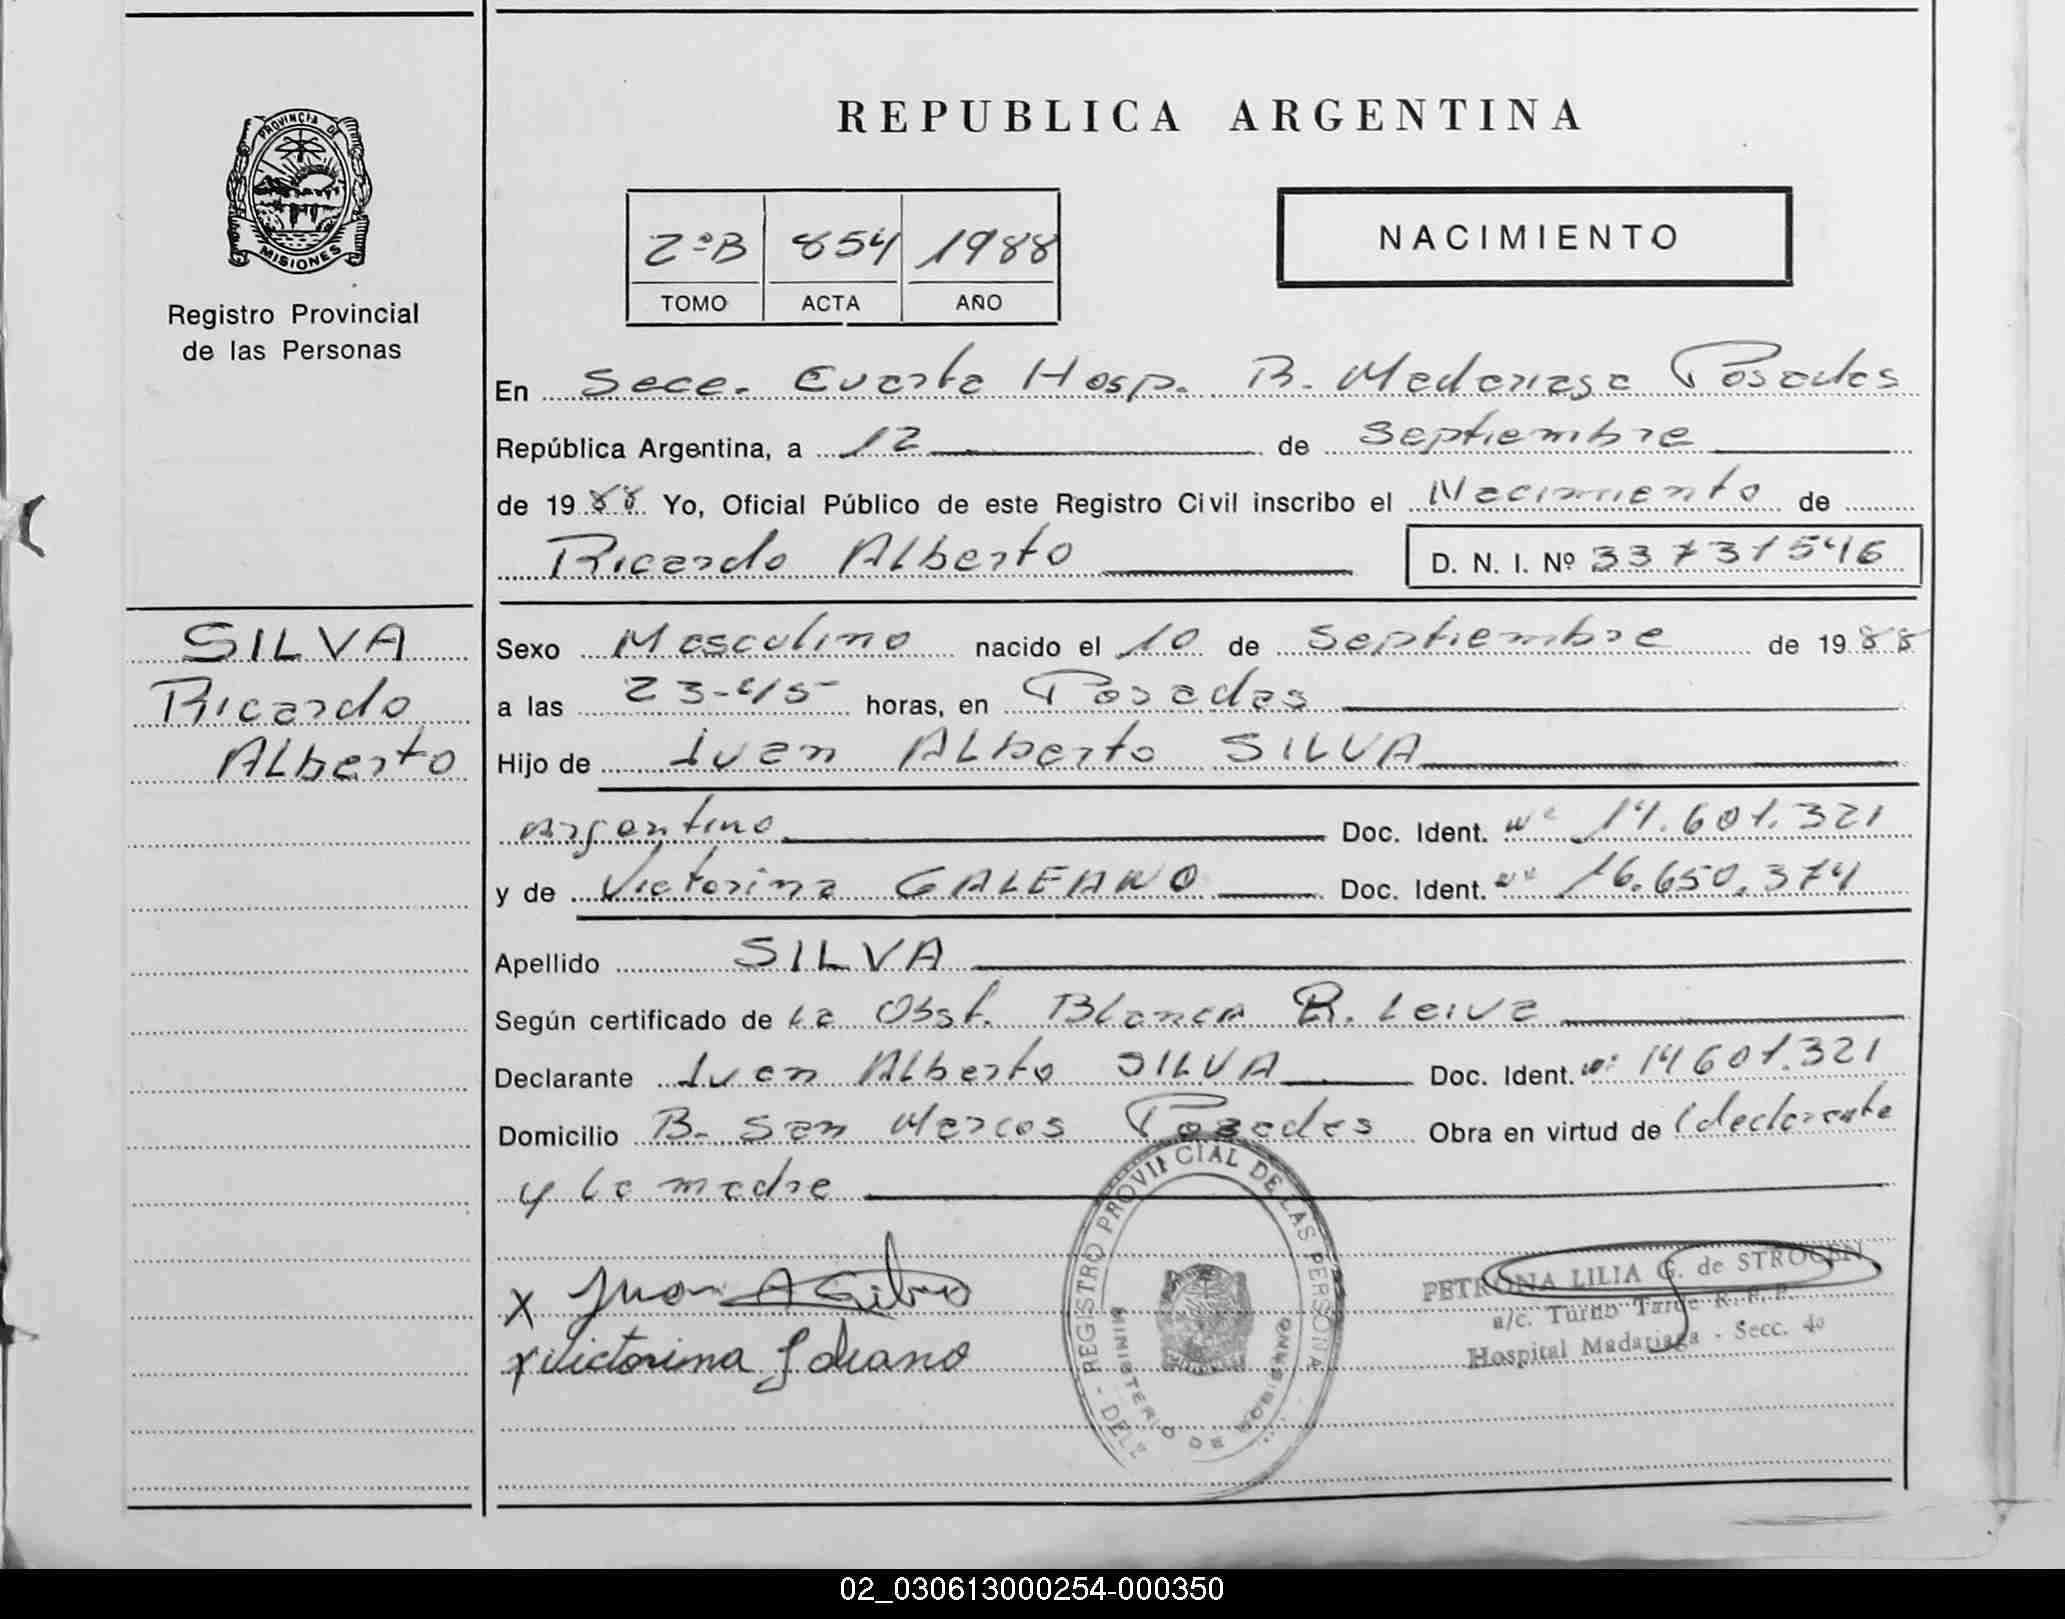 PROVINCIA DE
MISIONES
Registro Provincial
de las Personas
SILVA
Ricardo
Alberto
REPUBLICA ARGENTINA
2ºB 854 1988
TOMO ACTA AÑO
NACIMIENTO
En Secc. Cuarta Hosp. R. Madariaga Posadas
República Argentina, a 12 de Septiembre
de 1988 Yo, Oficial Público de este Registro Civil inscribo el Nacimiento de
Ricardo Alberto D. N. I. Nº 33731546
Sexo Masculino nacido el 10 de Septiembre de 1988
a las 23-45 horas, en Posadas
Hijo de Juan Alberto SILVA
Argentino Doc. Ident. Nº 14.601.321
y de Victorina GALEANO Doc. Ident. Nº 16.650.374
Apellido SILVA
Según certificado de La Obst. Blanca R. Leiva
Declarante Juan Alberto SILVA Doc. Ident. Nº 14601.321
Domicilio B. San Marcos Posadas Obra en virtud de declarante
y la madre
X Juan A Silva
X Victorina Galeano
REGISTRO PROVINCIAL DE LAS PERSONA
MINISTERIO DE GOBIERNO
PETRONA LILIA G. de STROCEN
a/c. Turno Tarde R. P. P.
Hospital Madariaga - Secc. 4º
02_030613000254-000350